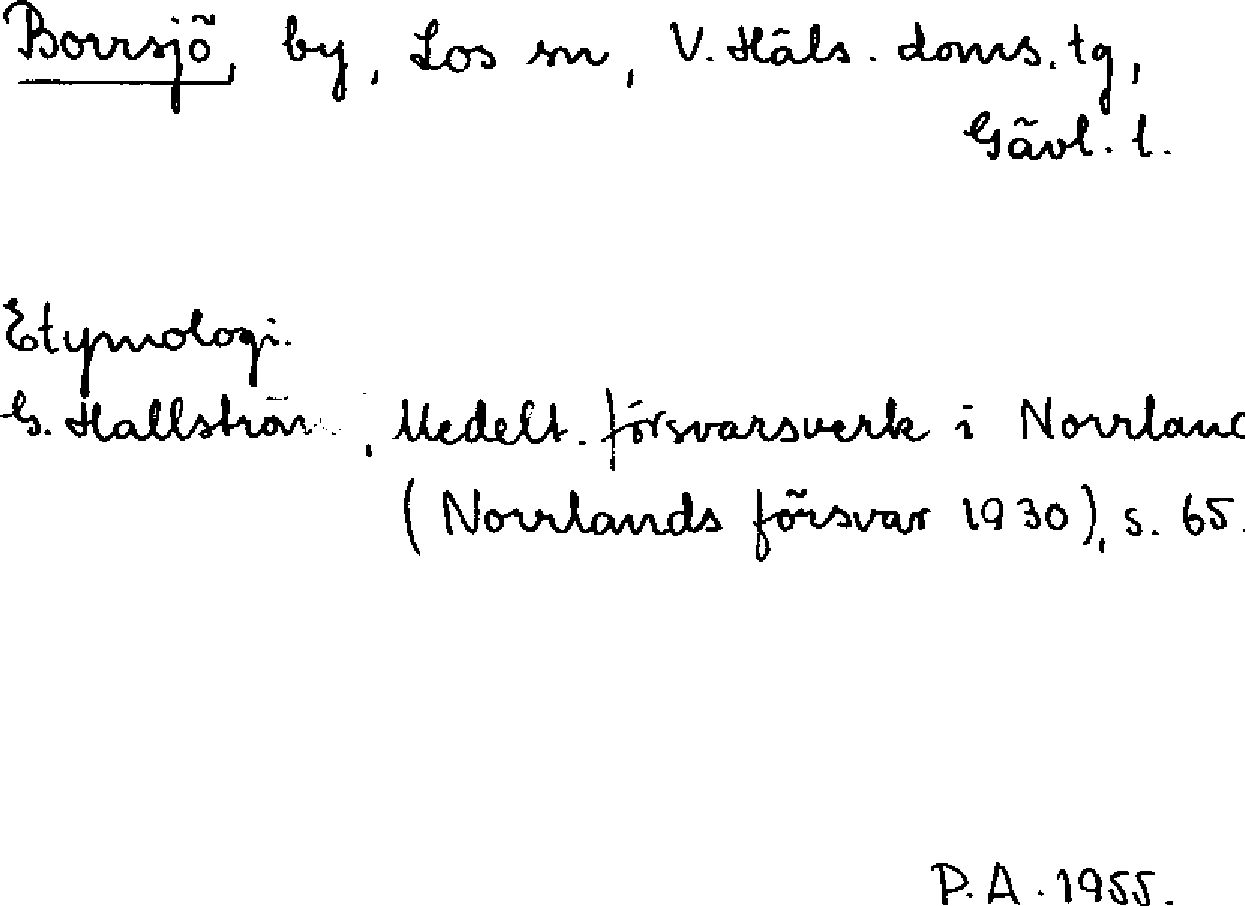 Borrsjö, by, Los sn, V. Häls. doms. tg,
Gävl. l.
Etymologi.
G. Hallström, Medelt. försvarsverk i Norrland
(Norrlands försvar 1930), s. 65.
P. A. 1955.